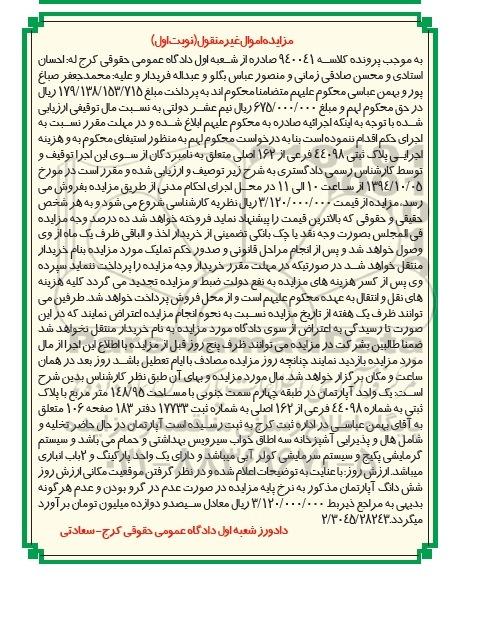 مزایده اموال غیر منقول (نوبت اول)
به موجب پرونده کلاسه ۹۴۰۰۴۱ صادره از شعبه اول دادگاه عمومی حقوقی کرج له: احسان
استادی و محسن صادقی زمانی و منصور عباس بگلو و عبداله فریدار و علیه: محمدجعفر صباغ
پور و بهمن عباسی محکوم علیهم متضامنا محکوم اند به پرداخت مبلغ ۱۷۹/۱۳۸/۱۵۳/۷۱۵ ریال
در حق محکوم لهم و مبلغ ۶۷۵/۰۰۰/۰۰۰ ریال نیم عشر دولتی به نسبت مال توقیفی ارزیابی
شده با توجه به اینکه اجرائیه صادره به محکوم علیهم ابلاغ شده و در مهلت مقرر نسبت به
اجرای حکم اقدام ننموده است بنا به درخواست محکوم لهم به منظور استیفای محکوم به و هزینه
اجرایی پلاک ثبتی ۴۴۰۹۸ فرعی از ۱۶۲ اصلی متعلق به نامبردگان از سوی این اجرا توقیف و
توسط کارشناس رسمی دادگستری به شرح زیر توصیف و ارزیابی شده و مقرر است در مورخ
۱۳۹۴/۱۰/۰۵ از ساعت ۱۰ الی ۱۱ در محل اجرای احکام مدنی از طریق مزایده بفروش می
رسد، مزایده از قیمت ۳/۱۲۰/۰۰۰/۰۰۰ ریال نظریه کارشناسی شروع می شود و به هر شخص
حقیقی و حقوقی که بالاترین قیمت را پیشنهاد نماید فروخته خواهد شد ده درصد وجه مزایده
فی المجلس بصورت وجه نقد یا چک بانکی تضمینی از خریدار اخذ و الباقی ظرف یک ماه از وی
وصول خواهد شد و پس از انجام مراحل قانونی و صدور حکم تملیک مورد مزایده بنام خریدار
منتقل خواهد شد در صورتیکه در مهلت مقرر خریدار وجه مزایده را پرداخت ننماید سپرده
وی پس از کسر هزینه های مزایده به نفع دولت ضبط و مزایده تجدید می گردد کلیه هزینه
های نقل و انتقال به عهده محکوم علیهم است و از محل فروش پرداخت خواهد شد. طرفین می
توانند ظرف یک هفته از تاریخ مزایده نسبت به نحوه انجام مزایده اعتراض نمایند که در این
صورت تا رسیدگی به اعتراض از سوی دادگاه مورد مزایده به نام خریدار منتقل نخواهد شد
ضمنا طالبین شرکت در مزایده می توانند ظرف پنج روز قبل از مزایده با اطلاع این اجرا از مال
مورد مزایده بازدید نمایند چنانچه روز مزایده مصادف با ایام تعطیل باشد روز بعد در همان
ساعت و مکان برگزار خواهد شد. مال مورد مزایده و بهای آن طبق نظر کارشناس بدین شرح
است: یک واحد آپارتمان در طبقه چهارم سمت جنوبی با مساحت ۱۴۸/۹۵ متر مربع با پلاک
ثبتی به شماره ۴۴۰۹۸ فرعی از ۱۶۲ اصلی به شماره ثبت ۱۷۷۳۳ دفتر ۱۸۳ صفحه ۱۰۶ متعلق
به آقای بهمن عباسی در اداره ثبت کرج به ثبت رسیده است آپارتمان در حال حاضر تخلیه و
شامل هال و پذیرایی آشپزخانه سه اطاق خواب سرویس بهداشتی و حمام می باشد و سیستم
گرمایشی پکیج و سیستم سرمایشی کولر آبی میباشد و دارای یک واحد پارکینگ و ۲باب انباری
میباشد. ارزش روز: با عنایت به توضیحات اعلام شده و در نظر گرفتن موقعیت مکانی ارزش روز
شش دانگ آپارتمان مذکور به نرخ پایه مزایده در صورت عدم در گرو بودن و عدم هرگونه
بدیهی به مراجع ذیربط ۳/۱۲۰/۰۰۰/۰۰۰ ریال معادل سیصدو دوازده میلیون تومان برآورد
میگردد.۲/۳۰۴۵/۲۸۲۴۳
دادورز شعبه اول دادگاه عمومی حقوقی کرج - سعادتی